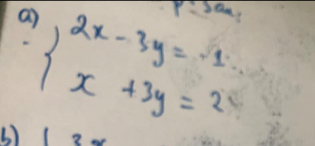 a) { 2x - 3y = -1
x + 3y = 2
b) {